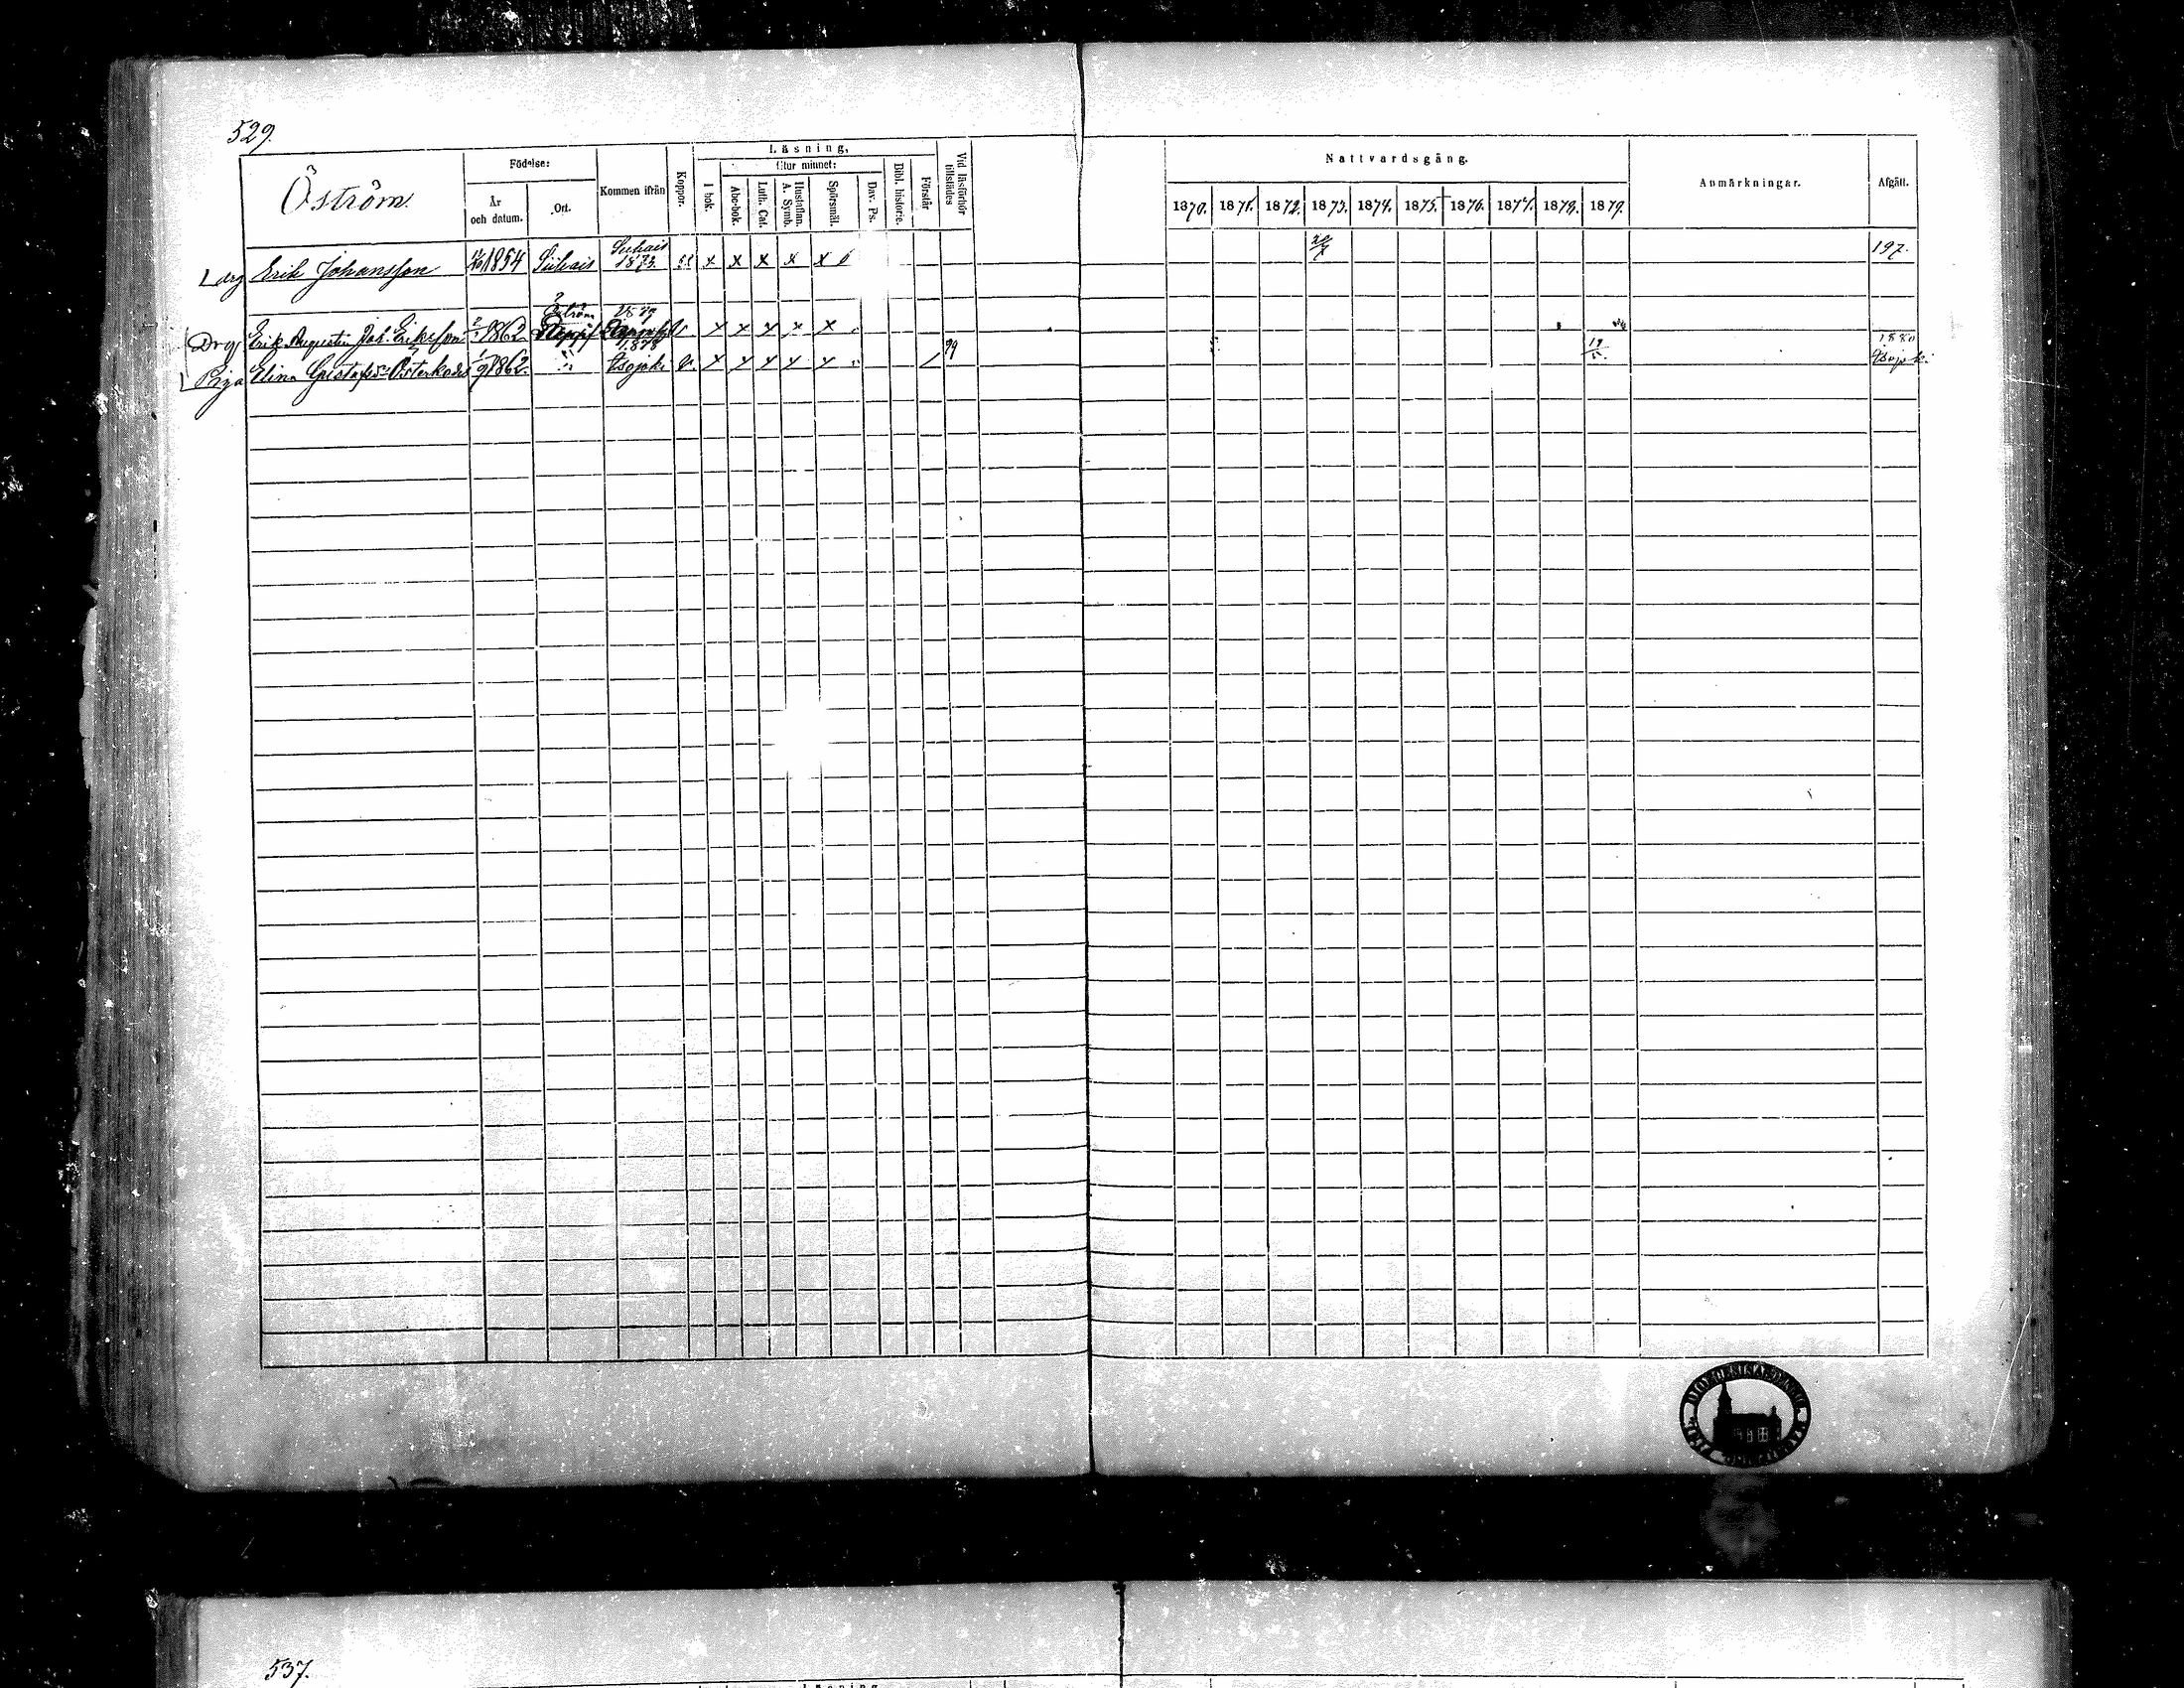 529.
Öström
Födelse:
År och datum.
Ort.
Kommen ifrån
Koppor.
Läsning,
Utur minnet:
I bok.
Abc-bok.
Luth. Cat.
Hustaflan. A. Symb.
Spörsmål.
Dav. Ps.
Bibl. historie.
Förstår
Vid läsförhör tillstädes
Nattvardsgång.
1870. 1871. 1872. 1873. 1874. 1875. 1876. 1877. 1878. 1879.
Anmärkningar.
Afgått.
Erik Johansson 1854 1873. x x x x x
197.
Drg Erik Augustin Joh. Eriksson 1862 x x x x x
1879
1878
Piga Elina Gustafsd. 1/9 1862. x x x x x
19/5.
1880
537.
Läsning